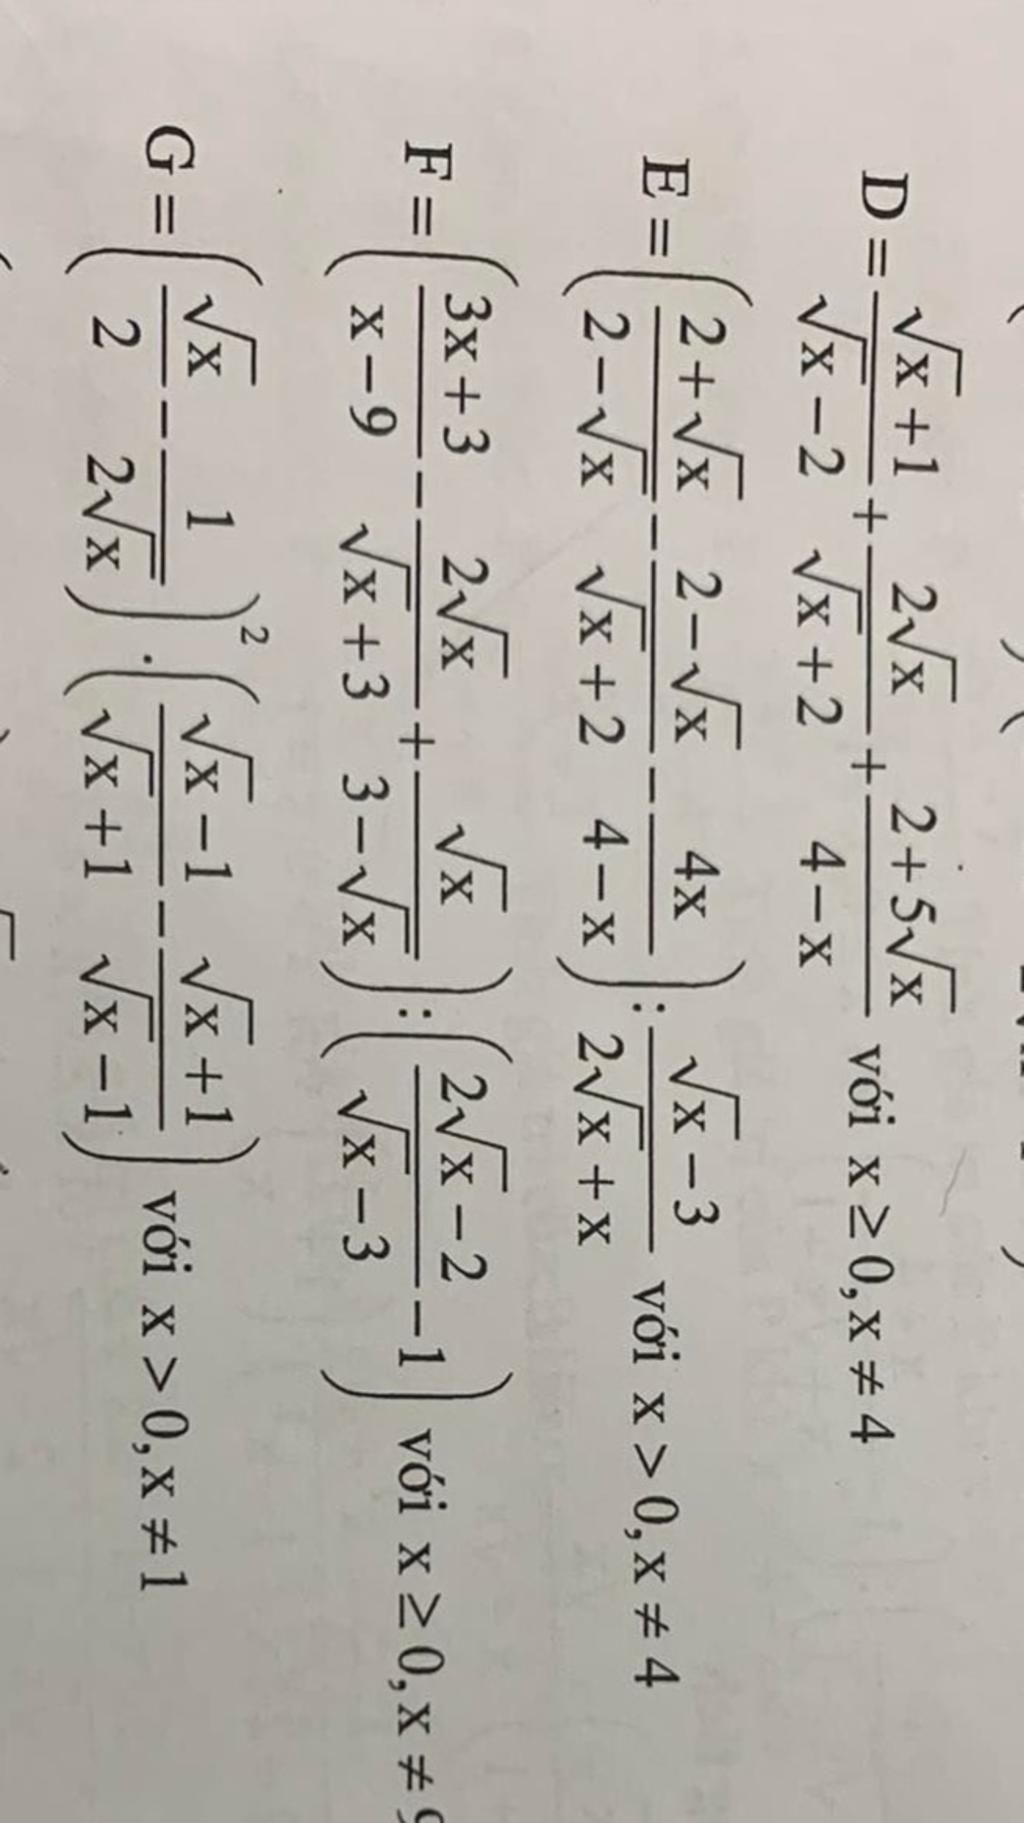 D = \frac{\sqrt{x}+1}{\sqrt{x}-2} + \frac{2\sqrt{x}}{\sqrt{x}+2} + \frac{2+5\sqrt{x}}{4-x} với x ≥ 0, x ≠ 4
E = \left( \frac{2+\sqrt{x}}{2-\sqrt{x}} - \frac{2-\sqrt{x}}{\sqrt{x}+2} - \frac{4x}{4-x} \right) : \frac{\sqrt{x}-3}{2\sqrt{x}+x} với x > 0, x ≠ 4
F = \left( \frac{3x+3}{x-9} - \frac{2\sqrt{x}}{\sqrt{x}+3} + \frac{\sqrt{x}}{3-\sqrt{x}} \right) : \left( \frac{2\sqrt{x}-2}{\sqrt{x}-3} - 1 \right) với x ≥ 0, x ≠ 9
G = \left( \frac{\sqrt{x}}{2} - \frac{1}{2\sqrt{x}} \right)^2 . \left( \frac{\sqrt{x}-1}{\sqrt{x}+1} - \frac{\sqrt{x}+1}{\sqrt{x}-1} \right) với x > 0, x ≠ 1